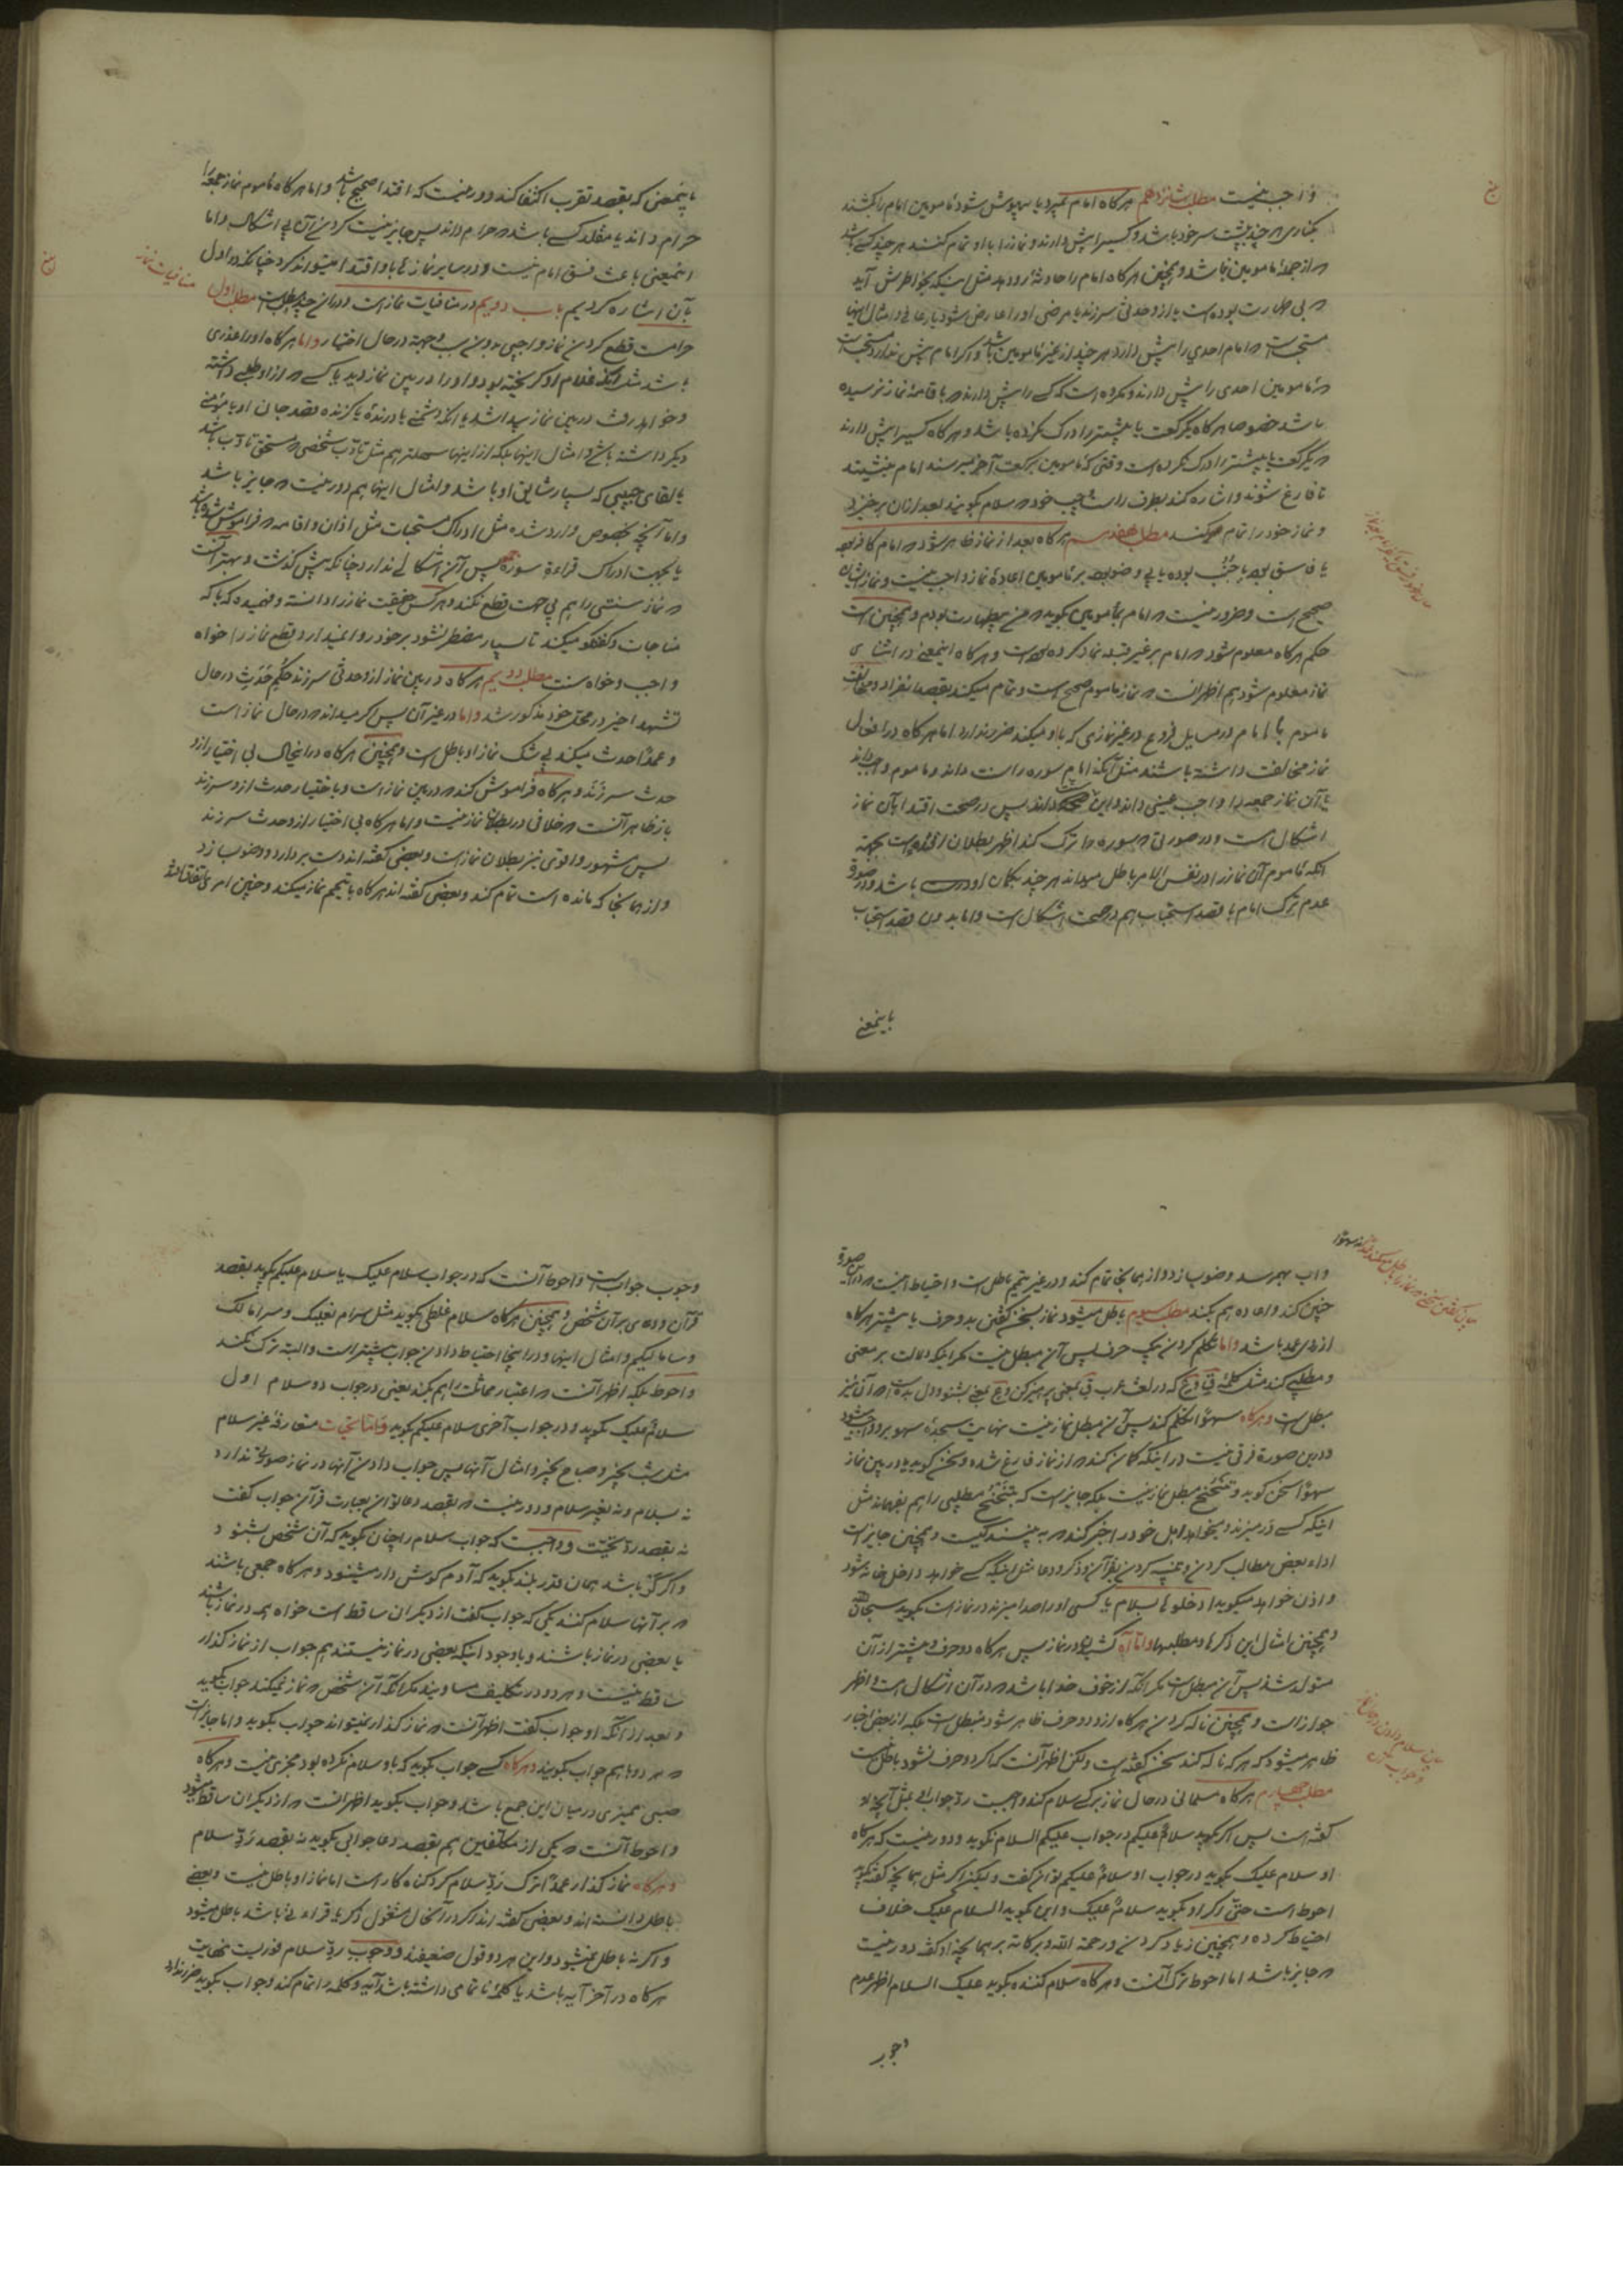 واجب نیست مطلب شانزدهم هرکاه امام بمیرد یا بیهوش شود مامومین امام را بکشند
بکناری هر چند پشت سر خود باشد و کسیرا پیش دارند و نماز را با او تمام کنند هر چند کسی باشد
که از جمله مامومین نباشد و همچنین هرکاه امام را حادثهٔ رو دهد مثل اینکه بخواطرش آید
که بی طهارت بوده است یا از او حدثی سر زند یا مرضی او را عارض شود یا رعافی و امثال اینها
مستحب است که امام احدی را پیش دارد هر چند از غیر مامومین باشد و اکر امام پیش ندارد مستحب است
که مامومین احدی را پیش دارند و مکروه است که کسی را پیش دارند که باقامهٔ نماز نرسیده
باشد خصوصا هرکاه یکرکعت یا بیشتر را درک نکرده باشد و هرکاه کسیرا پیش دارند
که یکرکعت یا بیشتر را درک نکرده است وقتی که مامومین برکعت آخر میرسند امام مینشیند
تا فارغ شوند و اشاره کند بطرف راست و چپ خود که سلام بگویند بعد از آن برخیزد
و نماز خود را تمام میکند مطلب هفدهم هرکاه بعد از نماز ظاهر شود که امام کافر بوده
یا فاسق بوده یا جُنُب بوده یا بی وضو بوده بر مامومین اعادهٔ نماز واجب نیست و نماز ایشان
صحیح است و ضرور نیست که امام بمامومین بگوید که من بیطهارت بودم و همچنین است
حکم هرکاه معلوم شود که امام بر غیر قبله نماز کرده است و هرکاه اینمعنی در اثنای
نماز معلوم شود هم اظهر آنست که نماز ماموم صحیح است و تمام میکند بقصد انفراد و مخالفت
ماموم با امام در مسایل فروع در غیر نمازی که با او میکند ضرر ندارد اما هرکاه در افعال
نماز مخالفت داشته باشند مثل آنکه امام سوره را سنت داند و ماموم واجب داند
یا آن نماز جمعه را واجب عینی داند و این حرام داند پس در صحت اقتدا بآن نماز
اشکال است و در صورتی که سوره را ترک کند اظهر بطلان اقتدا است بجهة
آنکه ماموم آن نماز را در نفس الامر باطل میداند هر چند بکمان او درست باشد و در صورة
عدم ترک امام با قصد استحباب هم در صحت اشکال است و اما بدون قصد استحباب
باینمعنی
باینمعنی که بقصد تقرب اکتفا کند دور نیست که اقتدا صحیح باشد و اما هرکاه ماموم نماز جمعه را
حرام داند یا مقلد کسی باشد که حرام داند پس جایز نیست کردن آن بی اشکال و اما
اینمعنی باعث فسق امام نیست و در سایر نمازها باو اقتدا میتواند کرد چنانکه در اول
بآن اشاره کردیم باب دویم در منافیات نماز است و در آن چند مطلب است مطلب اول
منافیات نماز
حرامست قطع کردن نماز واجبی بدون سبب و جهة در حال اختیار و اما هرکاه او را عذری
باشد مثل آنکه غلام او کریخته بود و او را در بین نماز دید یا کسی که از او طلبی داشته
و خواهد رفت در بین نماز پیدا شد یا آنکه دشمنی یا درندهٔ یا کزنده بقصد جان او یا مؤمنی
دیگر داشته باشد و امثال اینها بلکه از اینها سهلتر هم مثل تأدیب شخصی که مستحق تأدیب باشد
یا لقای حبیبی که بسیار شایق او باشد و امثال اینها هم دور نیست که جایز باشد
و اما آنچه بخصوص وارد شده مثل ادراک مستحبات مثل اذان و اقامه که فراموش شده باشد
یا بجهت ادراک قراءة سورهٔ جمعه پس آن اشکالی ندارد چنانکه پیش کذشت و بهتر آنست
که نماز سنتی را هم بی جهت قطع نکند و هرکس حقیقت نماز را دانسته و فهمیده که با که
مناجات و کفتکو میکند تا بسیار مضطر نشود بر خود روا نمیدارد قطع نماز را خواه
واجب و خواه سنت مطلب دویم هرکاه در بین نماز از او حدثی سر زند حکم حَدَث در حال
تشهد اخیر در محل خود مذکور شد و اما در غیر آن پس اکر میداند که در حال نماز است
و عمدًا حدث میکند بی شک نماز او باطل است و همچنین هرکاه در اینحال بی اختیار از او
حدث سر زَنَد و هرکاه فراموش کند که در بین نماز است و باختیار حدث از او سر زند
باز ظاهر آنست که خلافی در بطلان نماز نیست و اما هرکاه بی اختیار از او حدث سر زند
پس مشهور و اقوی نیز بطلان نماز است و بعضی کفته اند دست بردارد و وضو بسازد
و از همانجا که مانده است تمام کند و بعضی کفته اند هرکاه با تیمم نماز میکند و چنین امری اتفاق افتد
و آب بهم رسد وضو بسازد و از همانجا تمام کند و در غیر تیمم باطل است و احتیاط اینست که در این صورة
چنین کند و اعاده هم بکند مطلب سیوم باطل میشود نماز بسخن کفتن بدو حرف یا بیشتر هرکاه
از روی عمد باشد و اما تکلم کردن بیک حرف پس آن مبطل نیست مکر اینکه دلالت بر معنی
و مطلبی کند مثل کلمهٔ قِ و عِ که در لغت عرب قِ بمعنی پرهیز کن و عِ بمعنی بشنو و دل بده است که آن نیز
مبطل است و هرکاه سهوًا تکلم کند پس آن مبطل نماز نیست نهایت سجدهٔ سهو بر او واجب میشود
و درین صورة فرقی نیست در اینکه کمان کند که از نماز فارغ شده و سخن کوید یا در بین نماز
سهوًا سخن کوید و تَنَحنُح مبطل نماز نیست بلکه جایز است که بتنحنح مطلبی را هم بفهماند مثل
اینکه کسی در میزند و میخواهد اهل خود را خبر کند که به بینند کیست و همچنین جایز است
اداء بعض مطالب کردن و تنبیه کردن بقرآن و ذکر و دعا مثل اینکه کسی خواهد داخل خانه شود
و اذن خواهد میکوید ادخلوها بسلام یا کسی او را صدا میزند در نماز است بگوید سبحان الله
و همچنین امثال این ذکرها و مطلبها و اما آه کشیدن در نماز پس هرکاه دو حرف و بیشتر از آن
متولد شد پس آن مبطل است مکر آنکه از خوف خدا باشد که در آن اشکال است و اظهر
جواز است و همچنین ناله کردن هرکاه ازو دو حرف ظاهر شود مبطل است بلکه از بعض اخبار
ظاهر میشود که هرکه ناله کند سخن کفته است و لکن اظهر آنست که اکر دو حرف نشود باطل نیست
مطلب چهارم هرکاه مسلمانی در حال نماز بر کسی سلام کند واجبست ردّ جواب او بمثل آنچه او
کفته است پس اکر بگوید سلامٌ علیکم در جواب علیکم السلام نکوید و دور نیست که هرکاه
او سلام علیک بگوید در جواب او سلامٌ علیکم توان کفت و لیکن اکر مثل همانچه کفته بکوید
احوط است حتّی اکر او بگوید سلامٌ علیک و این بگوید السلام علیک خلاف
احتیاط کرده و همچنین زیاد کردن و رحمة الله و برکاته بر همانچه او کفته دور نیست
که جایز باشد اما احوط ترک آنست و هرکاه سلام کننده بگوید علیک السلام اظهر عدم
وجوب
وجوب جواب است و احوط آنست که در جواب سلام علیک یا سلام علیکم بگوید بقصد
قرآن و دعای بر آن شخص و همچنین هرکاه سلام غلطی بگوید مثل سرام نعلیک و سراما لک
و ساما لیکم و امثال اینها و در اینجا احتیاط دادن جواب بیشتر است و البته ترک نکند
و احوط بلکه اظهر آنست که اعتبار مماثلت را هم بکند یعنی در جواب دو سلام اول
سلامٌ علیک بگوید و در جواب آخری سلام علیکم بگوید و اما تحیات متعارفهٔ غیر سلام
مثل شب بخیر و صباح بخیر و امثال آنها پس جواب دادن آنها در نماز صورتی ندارد
نه بسلام و نه بغیر سلام و دور نیست که بقصد دعا توان بعبارت قرآن جواب کفت
نه بقصد ردّ تحیّت و واجبست که جواب سلام را چنان بگوید که آن شخص بشنود
و اکر کَر باشد همان قدر بلند بگوید که آدم کوش دار میشنود و هرکاه جمعی باشند
که بر آنها سلام کنند یکی که جواب کفت از دیکران ساقط است خواه همه در نماز باشند
یا بعضی در نماز باشند و با وجود اینکه بعضی در نماز نیستند هم جواب از نماز کذار
ساقط نیست و هر دو در تکلیف مساویند مکر آنکه آن شخص که نماز نمیکند جواب بگوید
و بعد از آنکه او جواب کفت اظهر آنست که نماز کذار نمیتواند جواب بگوید و اما جایز است
که هر دو باهم جواب بگویند و هرکاه کسی جواب بگوید که باو سلام نکرده بود مجزی نیست و هرکاه
صبی ممیزی در میان این جمع باشد و جواب بگوید اظهر آنست که از دیکران ساقط میشود
و احوط آنست که یکی از مکلفین هم بقصد دعا جوابی بگوید نه بقصد رَدّ سلام
و هرکاه نماز کذار عمدًا ترک رَدّ سلام کرد کناه کار است اما نماز او باطل نیست و بعضی
باطل دانسته اند و بعضی کفته اند اکر در آنحال مشغول ذکر یا قراءة باشد باطل میشود
و اکر نه باطل نمیشود و این هر دو قول ضعیفند و وجوب ردّ سلام فوریست نهایت
هرکاه در آخر آیه باشد یا کلمهٔ ناتمامی داشته باشد آیه و کلمه را تمام کند و جواب بگوید ضرر ندارد